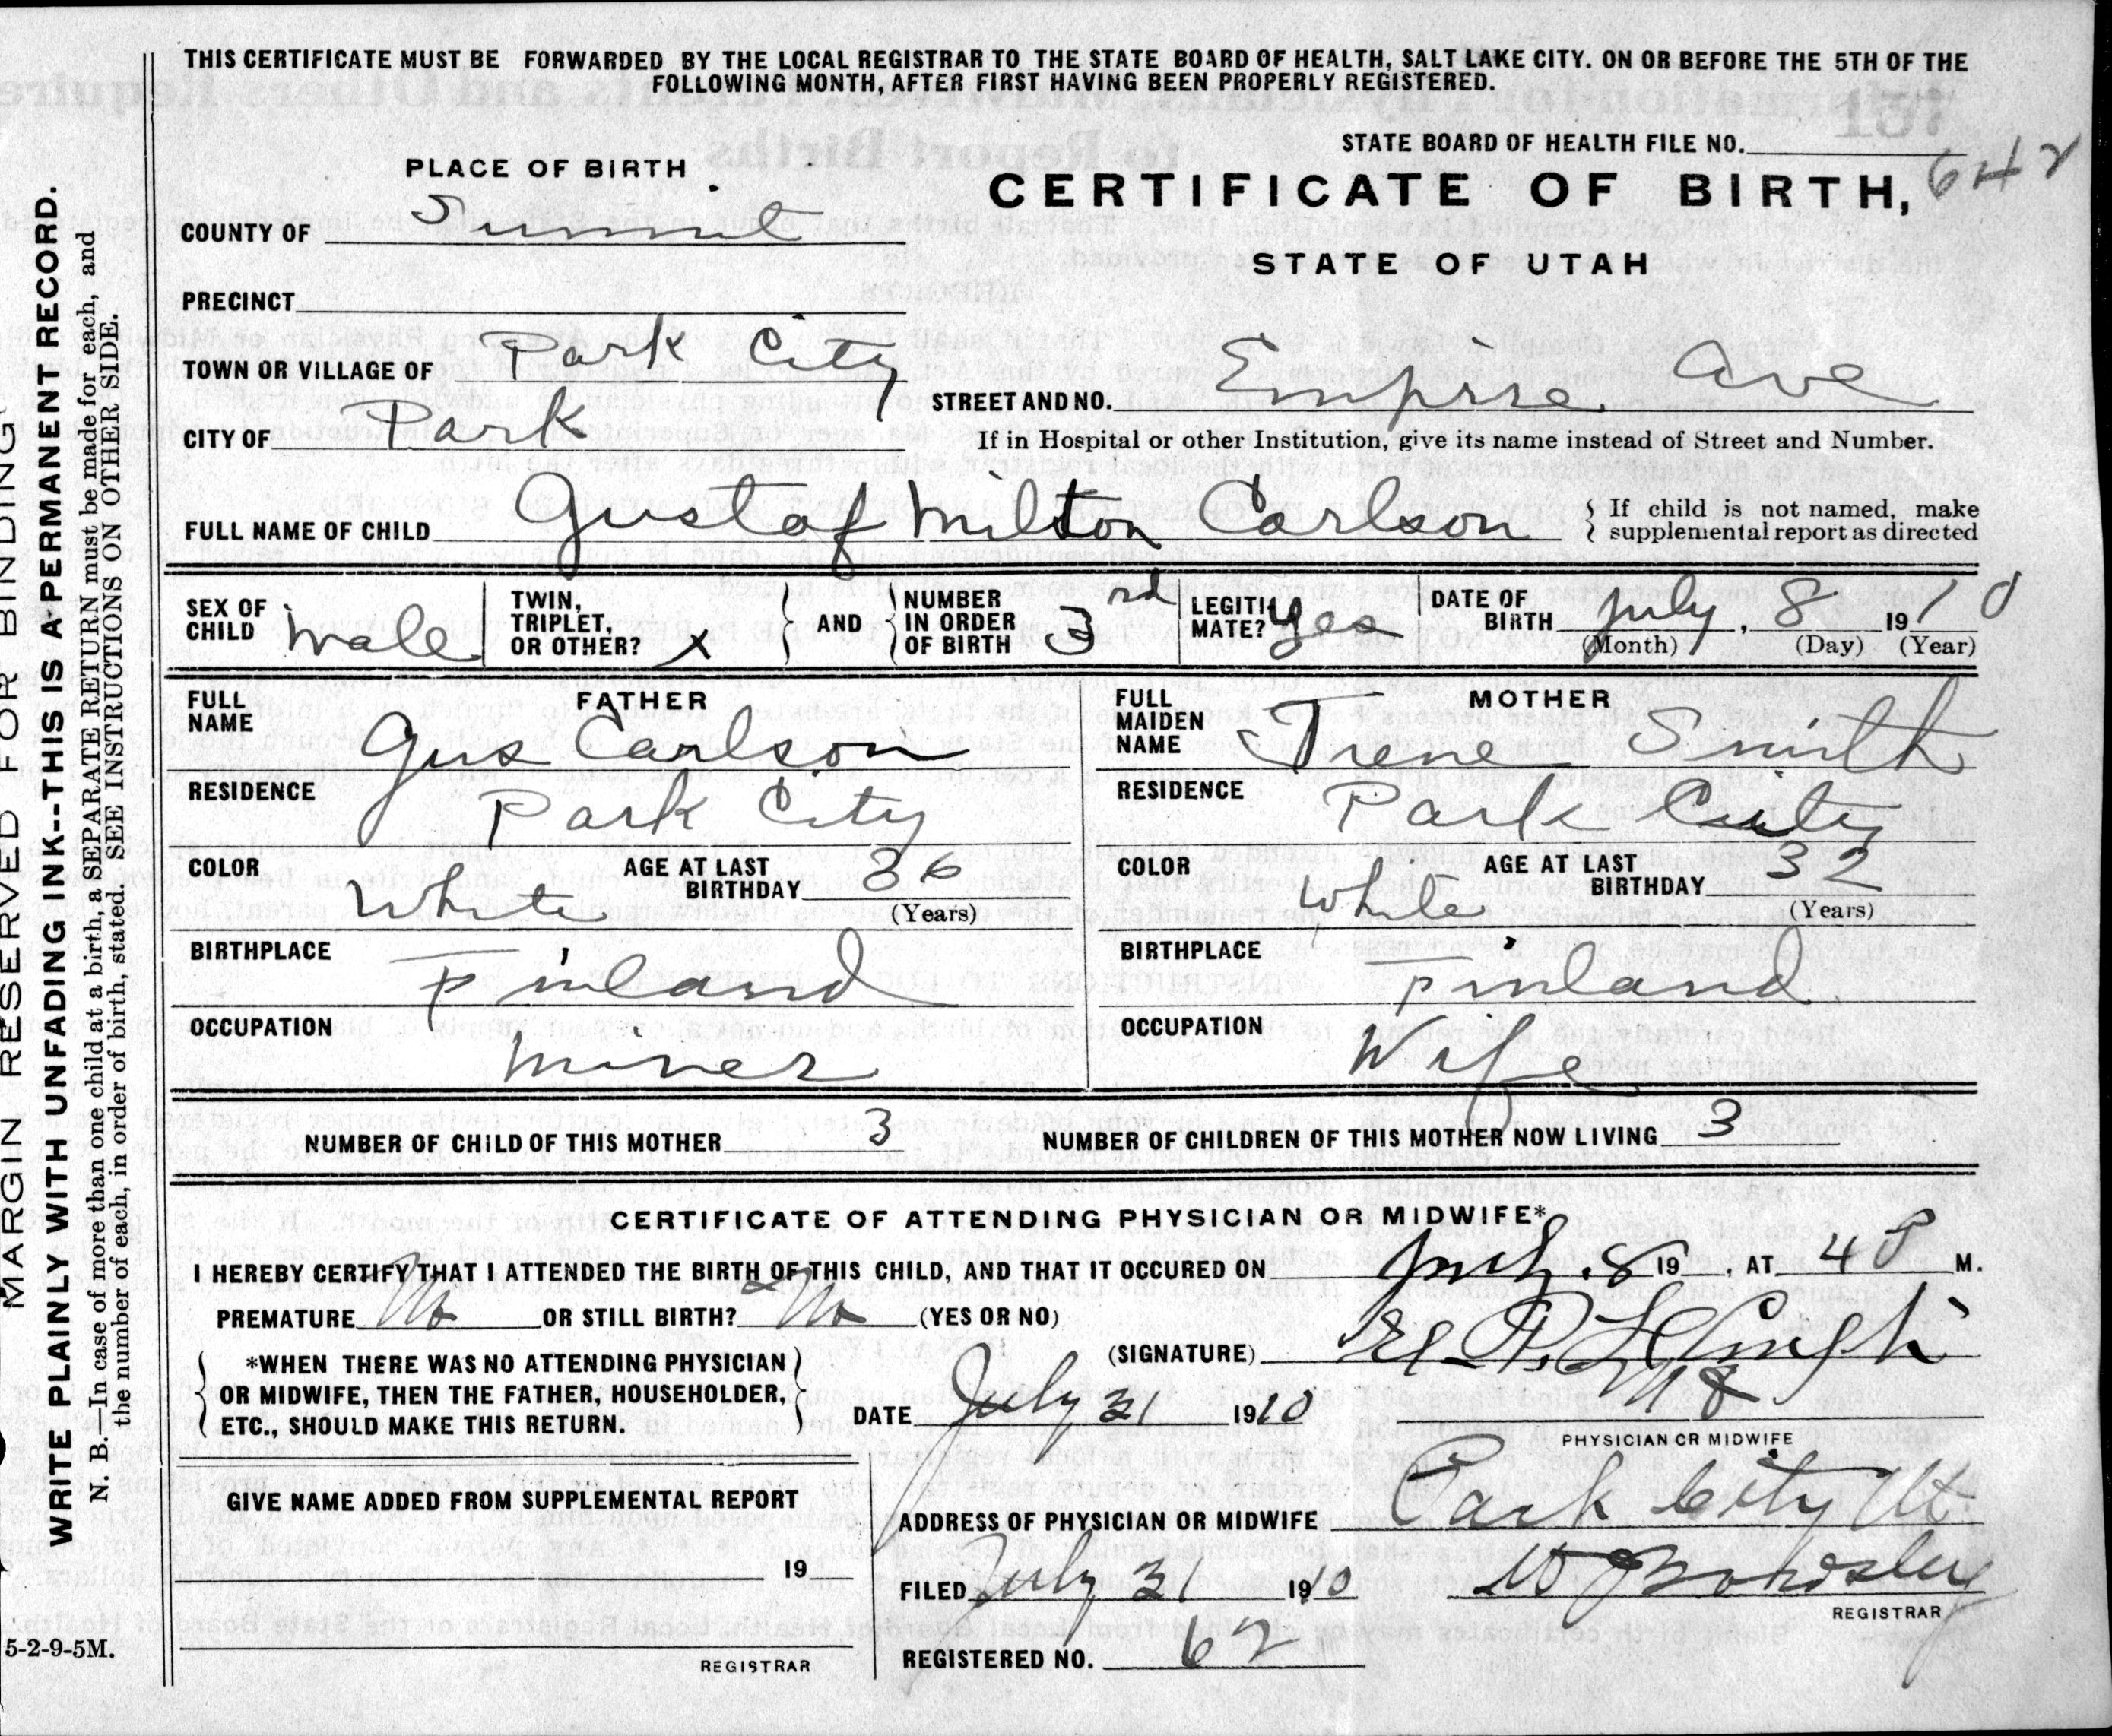 THIS CERTIFICATE MUST BE FORWARDED BY THE LOCAL REGISTRAR TO THE STATE BOARD OF HEALTH, SALT LAKE CITY. ON OR BEFORE THE 5TH OF THE
FOLLOWING MONTH, AFTER FIRST HAVING BEEN PROPERLY REGISTERED.
STATE BOARD OF HEALTH FILE NO. 642
PLACE OF BIRTH
CERTIFICATE OF BIRTH,
COUNTY OF Summit
STATE OF UTAH
PRECINCT
TOWN OR VILLAGE OF Park City
STREET AND NO. Empire Ave
CITY OF Park
If in Hospital or other Institution, give its name instead of Street and Number.
FULL NAME OF CHILD Gustaf Milton Carlson
If child is not named, make
supplemental report as directed
SEX OF CHILD Male
TWIN, TRIPLET, OR OTHER? x
AND
NUMBER IN ORDER OF BIRTH 3rd
LEGITIMATE? Yes
DATE OF BIRTH July, 8 1910
(Month) (Day) (Year)
FATHER
FULL NAME Gus Carlson
RESIDENCE Park City
COLOR White
AGE AT LAST BIRTHDAY 36
(Years)
BIRTHPLACE Finland
OCCUPATION Miner
MOTHER
FULL MAIDEN NAME Irene Smith
RESIDENCE Park City
COLOR White
AGE AT LAST BIRTHDAY 32
(Years)
BIRTHPLACE Finland
OCCUPATION Wife
NUMBER OF CHILD OF THIS MOTHER 3
NUMBER OF CHILDREN OF THIS MOTHER NOW LIVING 3
CERTIFICATE OF ATTENDING PHYSICIAN OR MIDWIFE*
I HEREBY CERTIFY THAT I ATTENDED THE BIRTH OF THIS CHILD, AND THAT IT OCCURED ON July 8 19 , AT 4 P M.
PREMATURE No OR STILL BIRTH? No (YES OR NO)
(SIGNATURE)
*WHEN THERE WAS NO ATTENDING PHYSICIAN
OR MIDWIFE, THEN THE FATHER, HOUSEHOLDER,
ETC., SHOULD MAKE THIS RETURN.
DATE July 31 1910
PHYSICIAN OR MIDWIFE
GIVE NAME ADDED FROM SUPPLEMENTAL REPORT
19
REGISTRAR
ADDRESS OF PHYSICIAN OR MIDWIFE Park City Ut
FILED July 31 1910
REGISTRAR
REGISTERED NO. 62
5-2-9-5M.
MARGIN RESERVED FOR BINDING
WRITE PLAINLY WITH UNFADING INK---THIS IS A PERMANENT RECORD.
N. B.—In case of more than one child at a birth, a SEPARATE RETURN must be made for each, and
the number of each, in order of birth, stated. SEE INSTRUCTIONS ON OTHER SIDE.